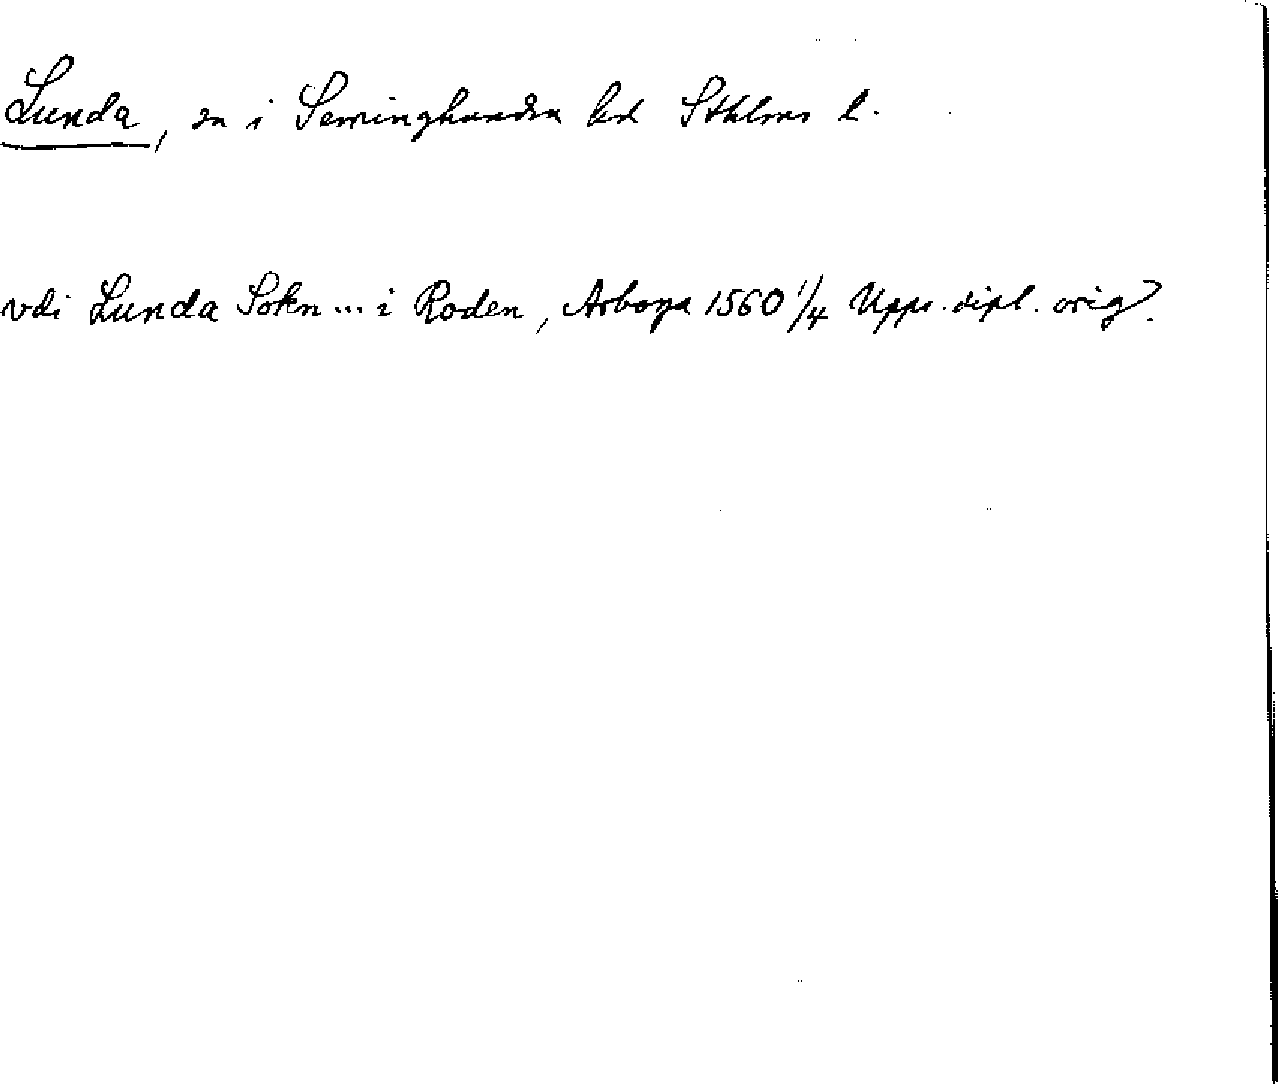 Lunda, sn i Seminghundra hd Sthlms l.
vdi Lunda Sokn... i Roden, Arboga 1560 1/4 Upps. dipl. orig.